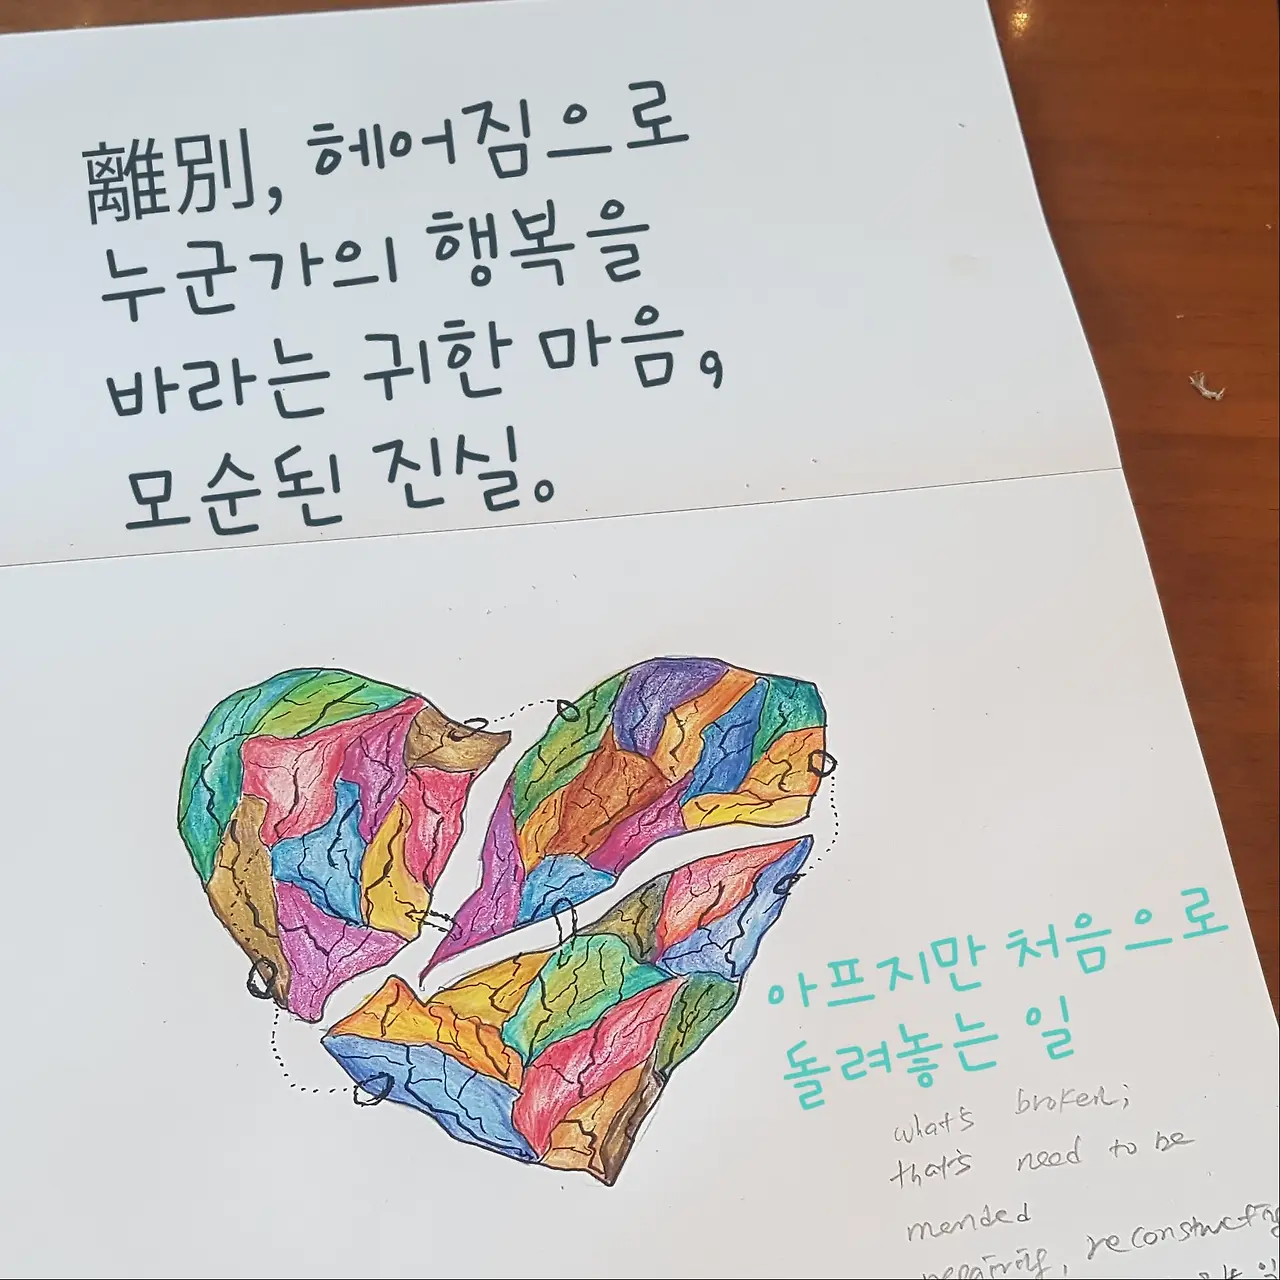 離別, 헤어짐으로
누군가의 행복을
바라는 귀한 마음,
모순된 진실.
아프지만 처음으로
돌려놓는 일
what's broken;
that's need to be
mended
repairing, reconstructing